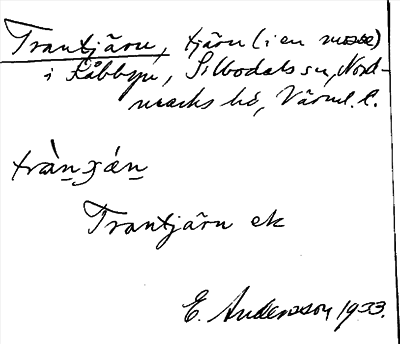 Trantjärn, tjärn (i en mosse)
i Råbbyn, Silbodals sn, Nord-
marks hd, Värml. l.
Trantjärn ek
E. Andersson 1933.